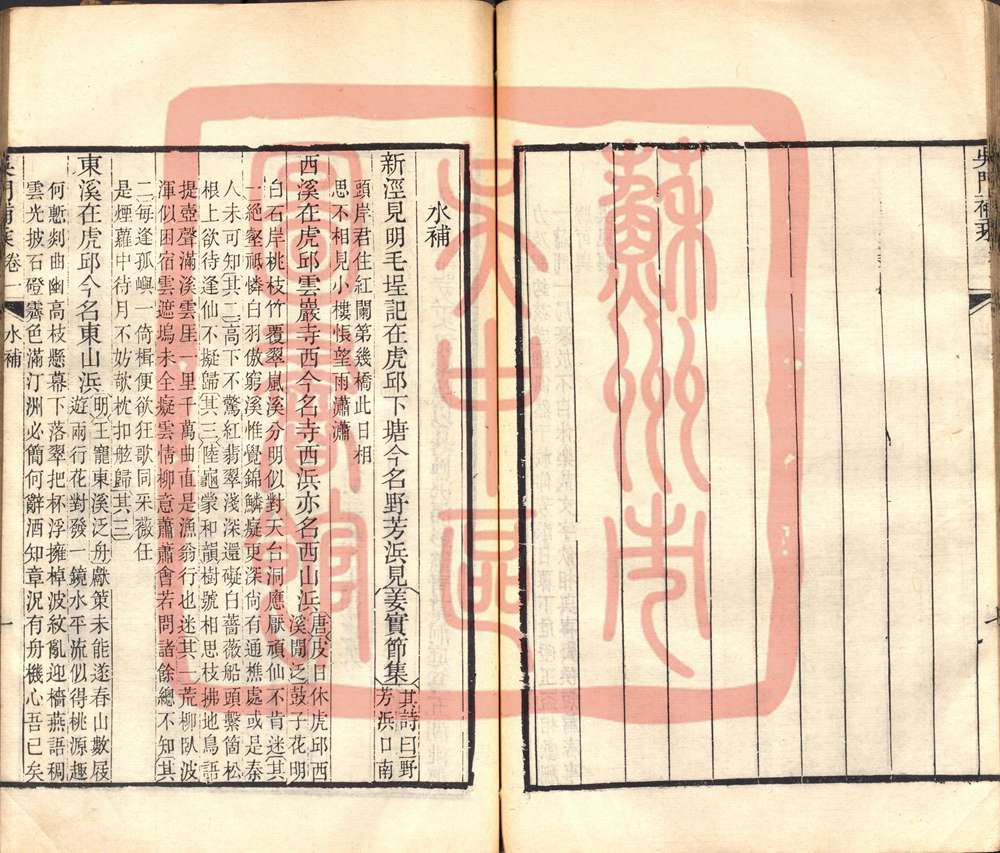 水補
新涇見明毛埕記在虎邱下塘今名野芳浜見姜實節集
其詩曰野
芳浜口南
頭岸君住紅闌第幾橋此日相
思不相見小樓悵望雨瀟瀟
西溪在虎邱雲巖寺西今名寺西浜亦名西山浜
唐皮日休虎邱西
溪閒泛鼓子花明
白石岸桃枝竹覆翠嵐溪分明似對天台洞應厭頑仙不肯迷其
一絕壑祗憐白羽傲窮溪惟覺錦鱗癡更深尙有通樵處或是秦
人未可知其二高下不驚紅翡翠淺深還礙白薔薇船頭繫箇松
根上欲待逢仙不擬歸其三陸龜蒙和韻樹號相思枝拂地鳥語
提壺聲滿溪雲厓一里千萬曲直是漁翁行也迷其一荒柳臥波
渾似困宿雲遮塢未全癡雲情柳意蕭蕭會若問諸餘總不知其
二每逢孤嶼一倚楫便欲狂歌同采薇任
是煙蘿中待月不妨欹枕扣舷歸其三
東溪在虎邱今名東山浜
明王寵東溪泛舟獻策未能遂春山數屐
遊兩行花對發一鏡水平流似得桃源趣
何慙剡曲幽高枝懸幕下落翠把杯浮擁棹波紋亂迎檣燕語稠
雲光披石磴霽色滿汀洲必簡何辭酒知章況有舟機心吾已矣
吳門補乘卷一
水補
一
蘇州市
吳中區
圖書館